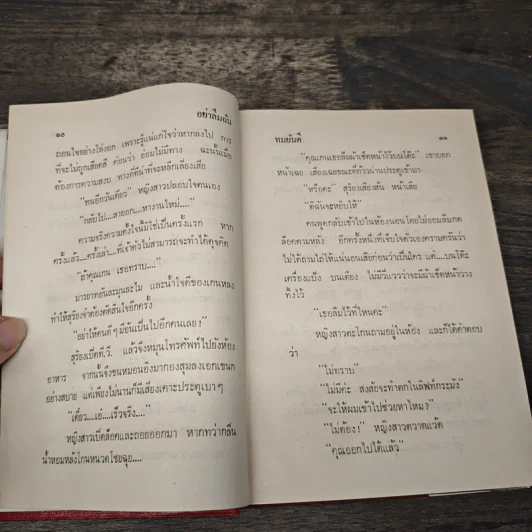 ๑๐
อย่าลืมฉัน
ถอนใจอย่างโล่งอก เพราะรู้แน่แก่ใจว่าหากลงไป การ
ที่จะไม่ถูกเสียดสี ค่อนว่า ย่อมไม่มีทาง ฉะนั้นเมื่อ
ต้องการความสงบ ทางที่ดีน่าที่จะหลีกเลี่ยงเสีย
“ทนอีกวันเดียว” หญิงสาวปลอบใจตนเอง
“กลับไป....ลาออก....หางานใหม่....”
ความจริงความตั้งใจนี้มิใช่เป็นครั้งแรก หาก
ครั้งแล้ว....ครั้งเล่า....ที่เจ้าตัวไม่สามารถจะทำได้ดุจคิด
“ถ้าคุณเกน เธอทราบ....”
มารยาทอันละมุนละไม และน้ำใจดีของเกนหลง
ทำให้สุริยงจำต้องตัดสินใจอีกครั้ง
“อย่าให้คนดี ๆ มีอันเป็นไปอีกคนเลย !”
สุริยงเปิดที.วี. แล้วจึงหมุนโทรศัพท์ไปยังห้อง
อาหาร จากนั้นจึงขนหมอนอิงมากองสุมลงเอกเขนก
อย่างสบาย แต่เพียงไม่นานก็มีเสียงเคาะประตูเบา ๆ
“เดี๋ยว....เอ๋....เร็วจริง....”
หญิงสาวเปิดล็อคและถอยออกมา หากทว่ากลิ่น
น้ำหอมหลังโกนหนวดโชยฉุย....
ทมยันตี
๑๑
“คุณเกนเธอลืมผ้าเช็ดหน้าไว้บนโต๊ะ” เขาบอก
หน้าเฉย เสียงเฉยขณะที่ก้าวผ่านประตูเข้ามา
“หรือคะ” สุริยงเสียงสั่น หน้าเสีย
“ดิฉันจะหยิบให้”
คนพูดกลับเข้าไปในห้องนอนโดยไม่ยอมลืมกด
ล็อคตามหลัง อีกครั้งหนึ่งที่เจ็บใจตัวเองครามครันว่า
ไม่ได้ถามไถ่ให้แน่นอนเสียก่อนว่าเป็นใคร แต่....บนโต๊ะ
เครื่องแป้ง บนเตียง ไม่มีแววว่าจะมีผ้าเช็ดหน้าวาง
ทิ้งไว้
“เธอลืมไว้ที่ไหนคะ”
หญิงสาวตะโกนถามอยู่ในห้อง และก็ได้คำตอบ
ว่า
“ไม่ทราบ”
“ไม่มีค่ะ สงสัยจะทำตกในลิฟท์กระมัง”
“จะให้ผมเข้าไปช่วยหาไหม?”
“ไม่ต้อง!” หญิงสาวตวาดแว้ด
“คุณออกไปได้แล้ว”